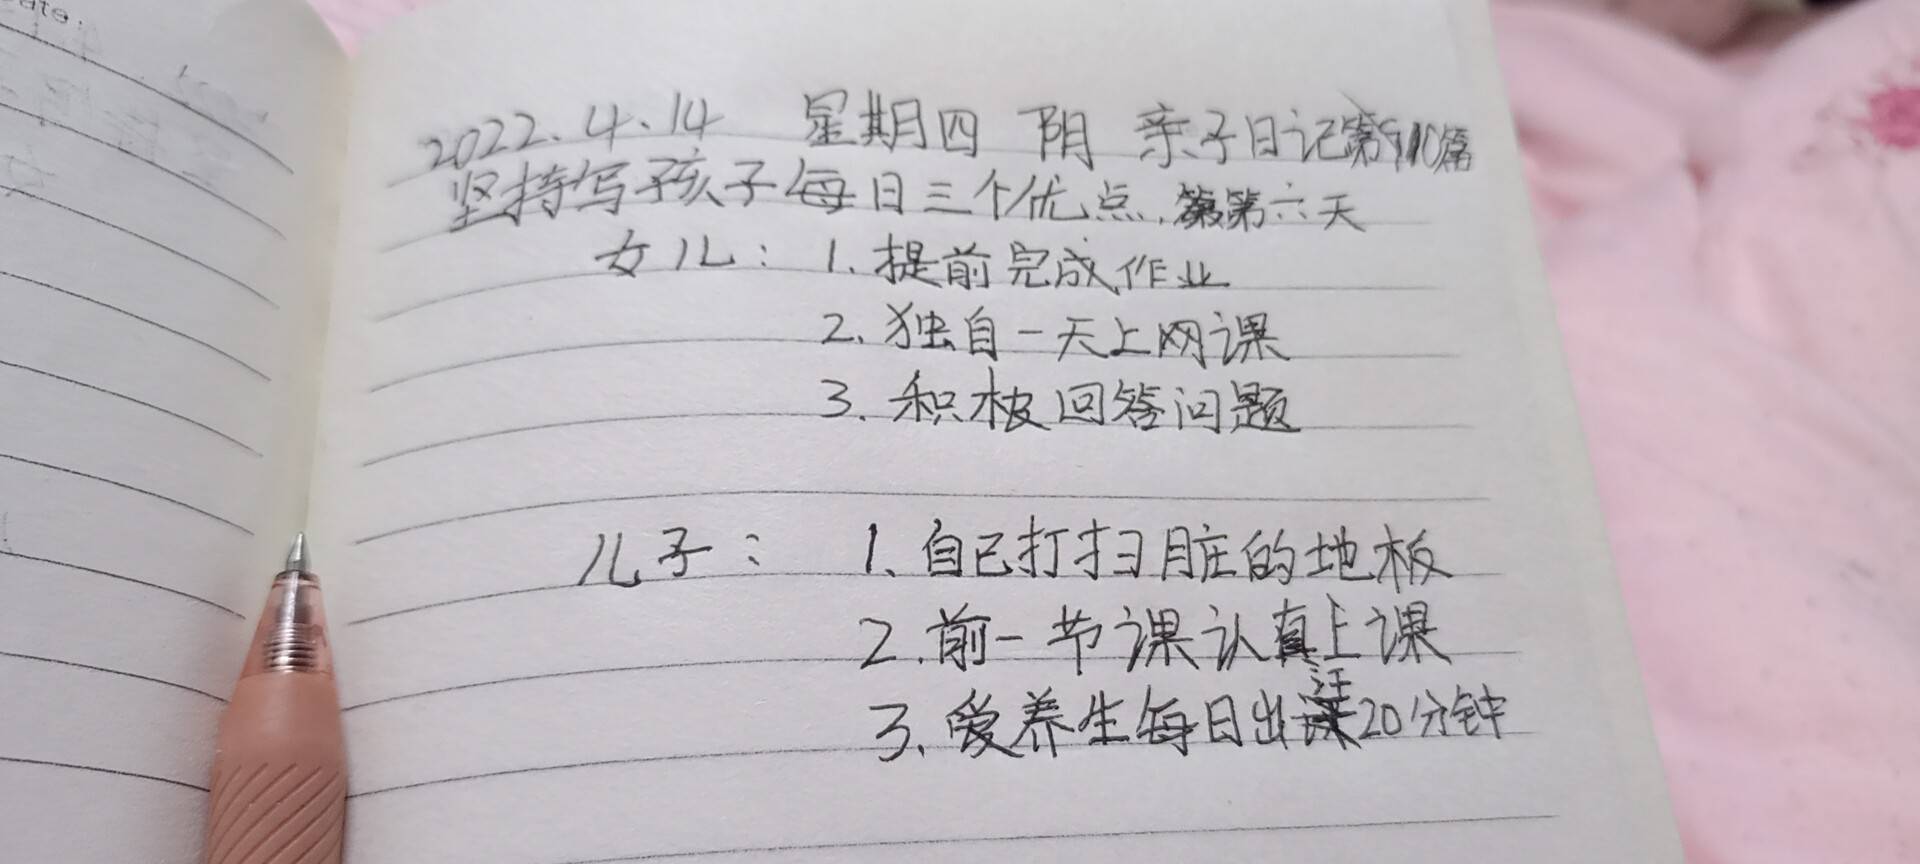 ate:
2022.4.14 星期四 阴 亲子日记第910篇
坚持写孩子每日三个优点,第第六天
女儿: 1.提前完成作业
2.独自一天上网课
3.积极回答问题
儿子: 1、自己打扫脏的地板
2.前一节课认真上课
3、爱养生每日出汗20分钟